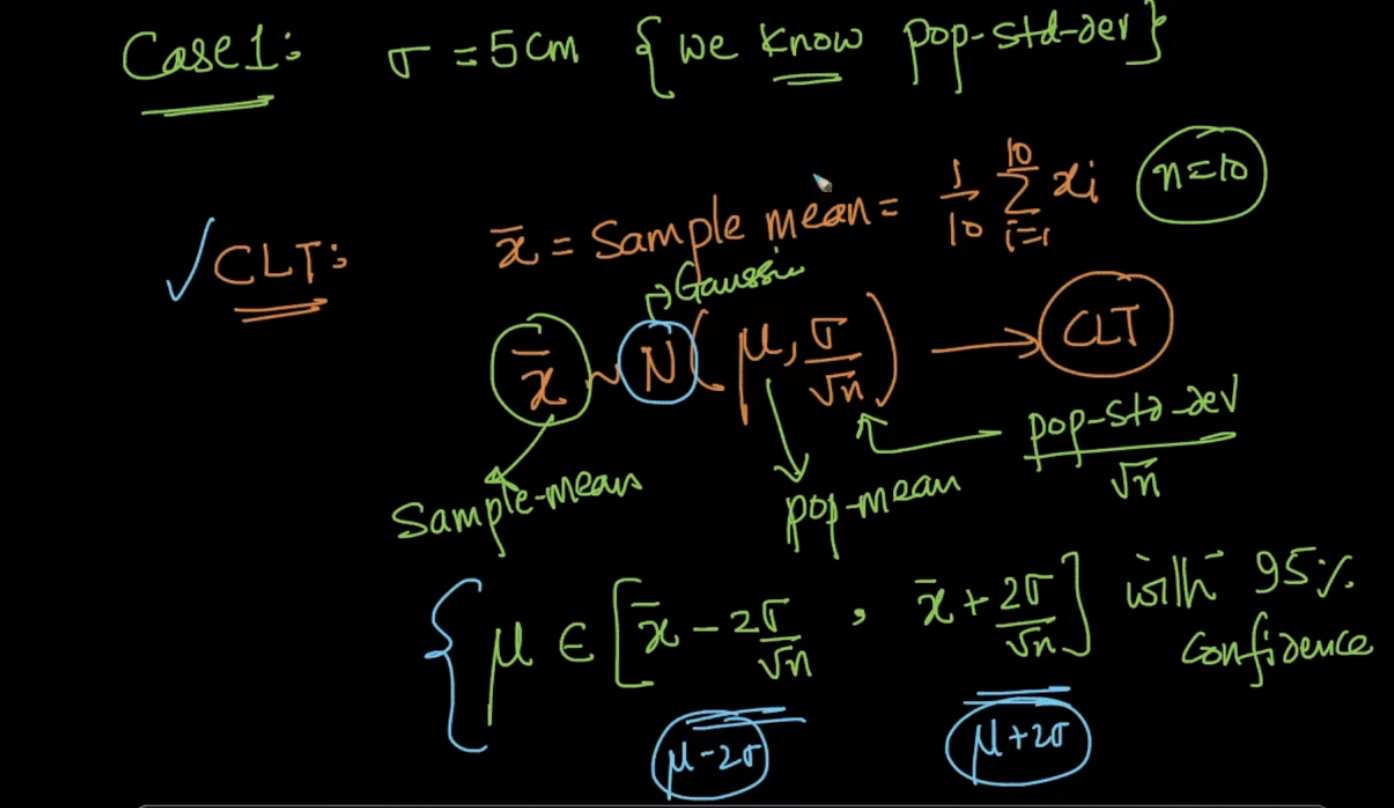 Case1: σ = 5cm {we know pop-std-dev}
CLT: x̄ = Sample mean = 1/10 Σ_{i=1}^{10} xi n=10
→ Gaussin
x̄ ~ N(μ, σ/√n) → CLT
pop-std-dev/√n
Sample-mean
pop-mean
μ ∈ [x̄ - 2σ/√n , x̄ + 2σ/√n] with 95%
confidence
μ-2σ μ+2σ